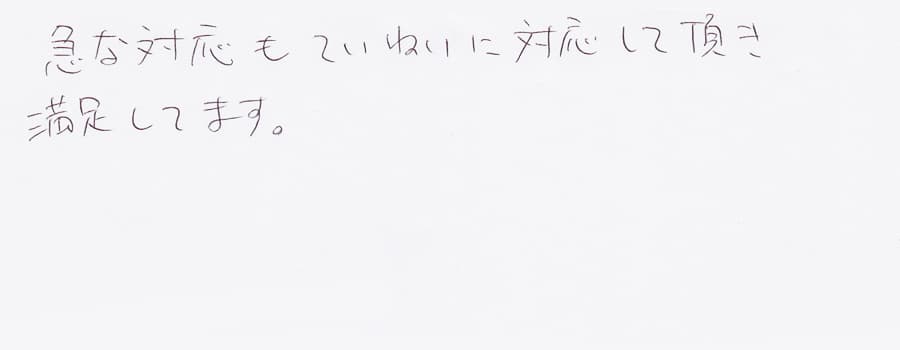 急な対応もていねいに対応して頂き
満足してます。